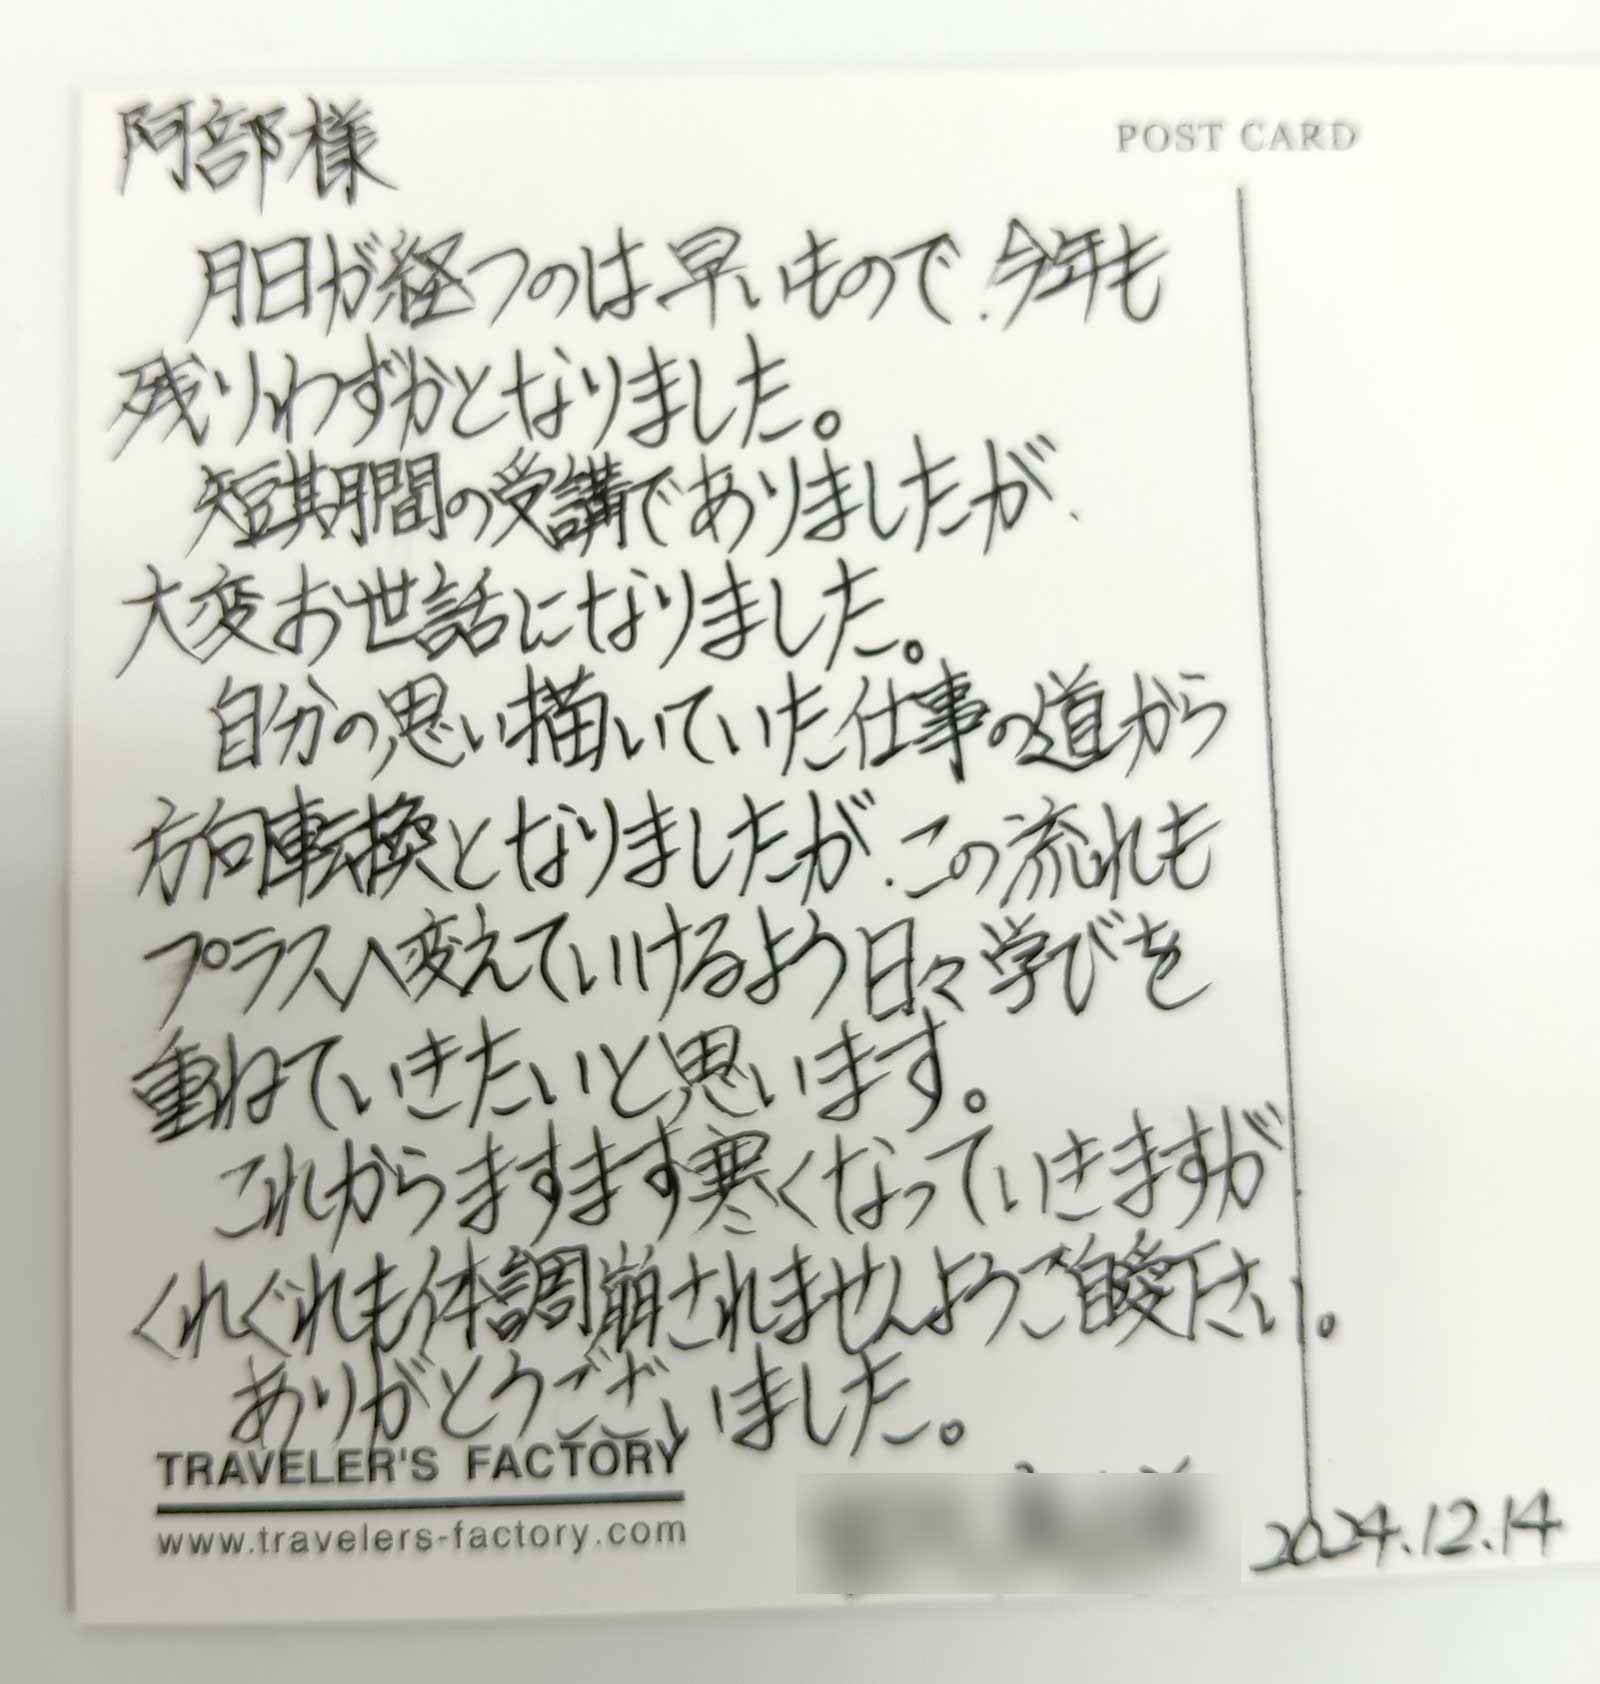 阿部様
POST CARD
月日が経つのは早いもので、今年も
残りわずかとなりました。
短期間の受講でありましたが、
大変お世話になりました。
自分の思い描いていた仕事の道から
方向転換となりましたが、この流れも
プラスへ変えていけるよう日々学びを
重ねていきたいと思います。
これからますます寒くなっていきますが
くれぐれも体調崩されませんようご自愛下さい。
ありがとうございました。
TRAVELER'S FACTORY
www.travelers-factory.com
2024.12.14